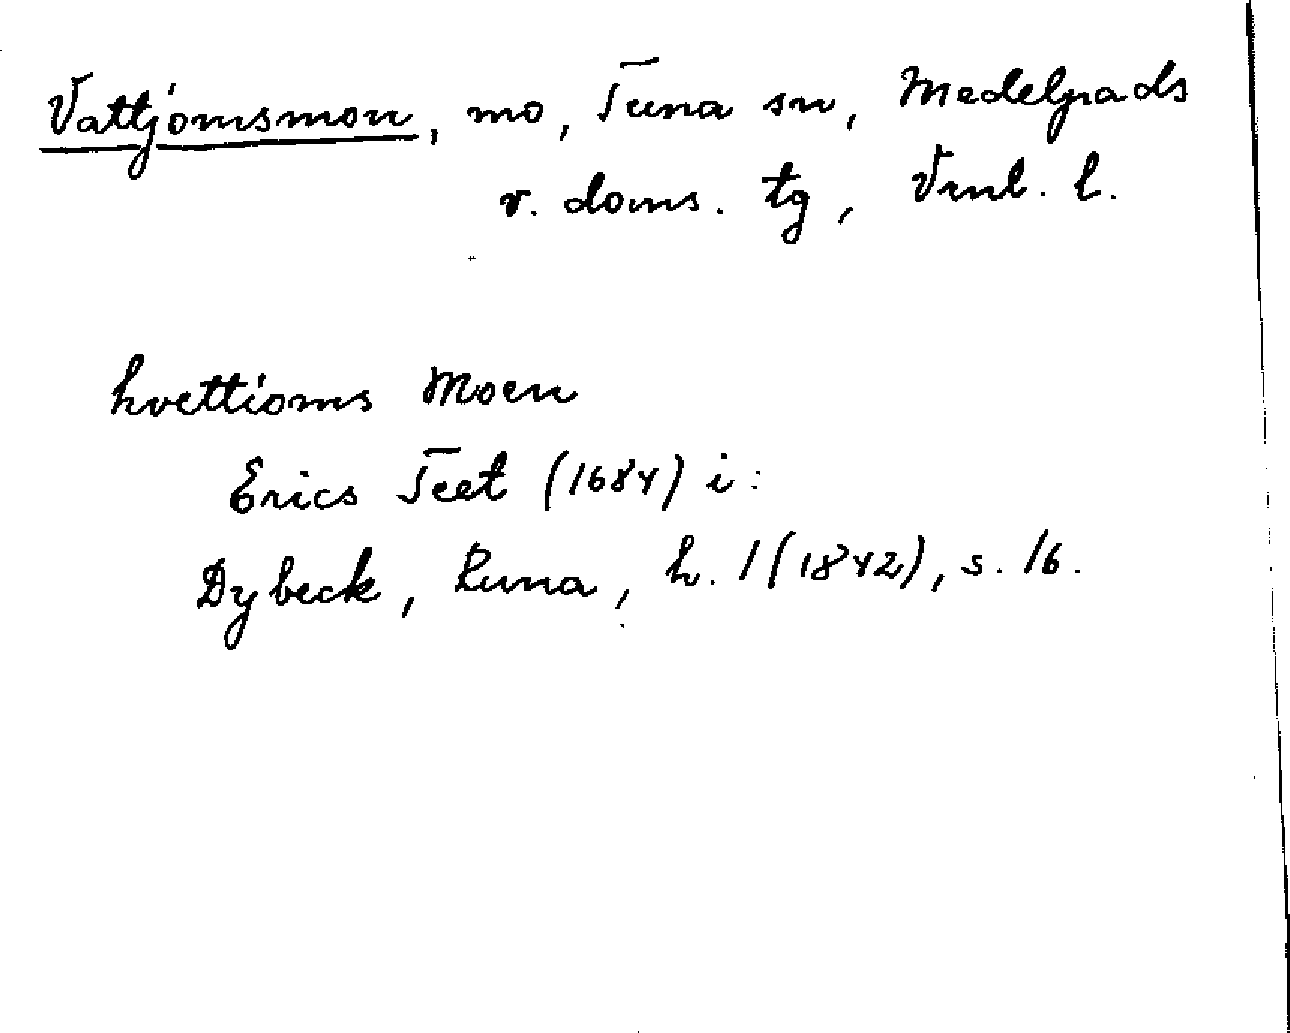 Vattjomsmon, mo, Tuna sn, Medelpads
v. doms. tg, Vnl. l.
hvettioms Moen
Erics Teet (1684) i:
Dybeck, Runa, h. 1 (1842), s. 16.